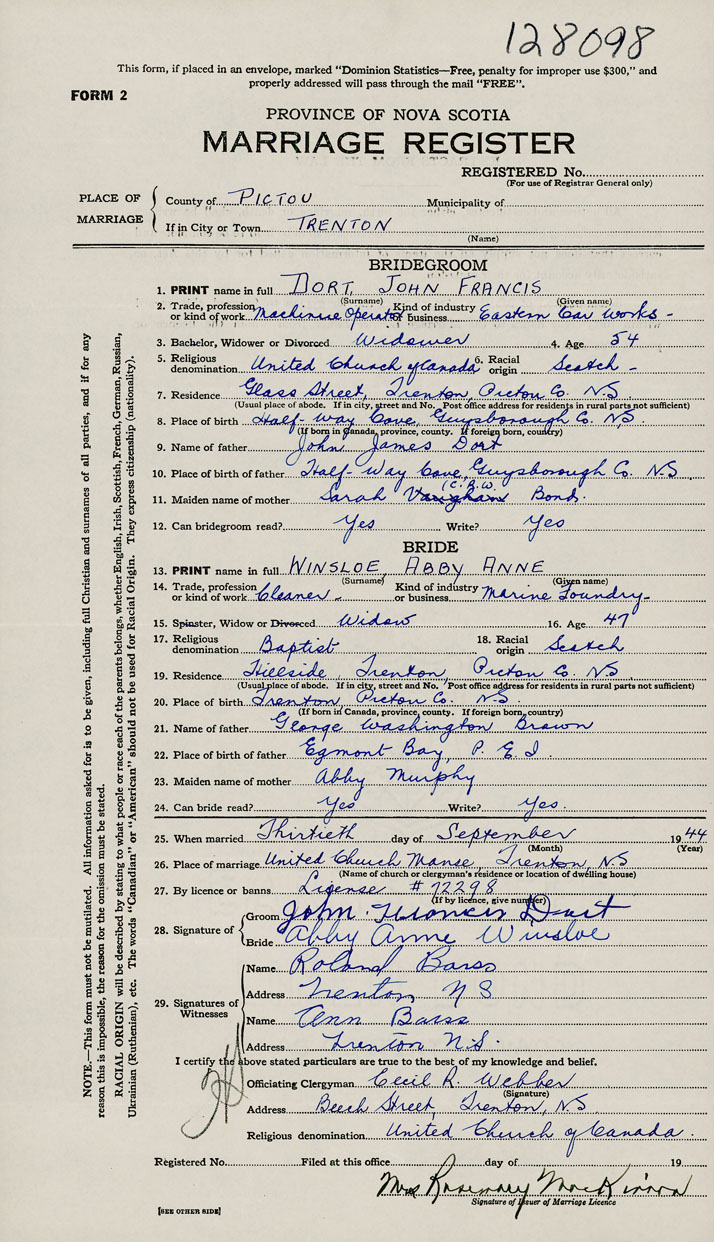 128098
This form, if placed in an envelope, marked "Dominion Statistics—Free, penalty for improper use $300," and
properly addressed will pass through the mail "FREE".
FORM 2
PROVINCE OF NOVA SCOTIA
MARRIAGE REGISTER
REGISTERED No.
(For use of Registrar General only)
PLACE OF MARRIAGE
County of PICTOU Municipality of
If in City or Town TRENTON
(Name)
BRIDEGROOM
1. PRINT name in full DORT, JOHN FRANCIS
(Surname) (Given name)
2. Trade, profession or kind of work Machine Operator Kind of industry or business Eastern Car Works -
3. Bachelor, Widower or Divorced Widower 4. Age 54
5. Religious denomination United Church of Canada 6. Racial origin Scotch -
7. Residence Glass Street, Trenton, Pictou Co. N.S.
(Usual place of abode. If in city, street and No. Post office address for residents in rural parts not sufficient)
8. Place of birth Half-Way Cove, Guysborough Co. N.S.
(If born in Canada, province, county. If foreign born, country)
9. Name of father John James Dort
10. Place of birth of father Half-Way Cove, Guysborough Co. N.S.
(C.R.W.
11. Maiden name of mother Sarah Vaughan Bond.
12. Can bridegroom read? Yes Write? Yes
BRIDE
13. PRINT name in full WINSLOE, ABBY ANNE
(Surname) (Given name)
14. Trade, profession or kind of work Cleaner - Kind of industry or business Marine Foundry -
15. Spinster, Widow or Divorced Widow 16. Age 47
17. Religious denomination Baptist 18. Racial origin Scotch
19. Residence Hillside, Trenton, Pictou Co. N.S.
(Usual place of abode. If in city, street and No. Post office address for residents in rural parts not sufficient)
20. Place of birth Trenton, Pictou Co. N.S.
(If born in Canada, province, county. If foreign born, country)
21. Name of father George Washington Brown
22. Place of birth of father Egmont Bay, P.E.I.
23. Maiden name of mother Abby Murphy
24. Can bride read? Yes Write? Yes.
25. When married Thirtieth day of September 1944
(Month) (Year)
26. Place of marriage United Church Manse, Trenton, N.S
(Name of church or clergyman's residence or location of dwelling house)
27. By licence or banns License #72298
(If by licence, give number)
28. Signature of
Groom John Francis Dort
Bride Abby Anne Winsloe
29. Signatures of Witnesses
Name Roland Barss
Address Trenton N S
Name Ann Barss
Address Trenton N.S.
I certify the above stated particulars are true to the best of my knowledge and belief.
Officiating Clergyman Cecil R. Webber
(Signature)
Address Beech Street, Trenton, N.S
Religious denomination United Church of Canada.
Registered No. Filed at this office day of 19
Mrs Rosemary MacKinnon
Signature of Issuer of Marriage Licence
[SEE OTHER SIDE]
NOTE.—This form must not be mutilated. All information asked for is to be given, including full Christian and surnames of all parties, and if for any
reason this is impossible, the reason for the omission must be stated.
RACIAL ORIGIN will be described by stating to what people or race each of the parents belongs, whether English, Irish, Scottish, French, German, Russian,
Ukrainian (Ruthenian), etc. The words "Canadian" or "American" should not be used for Racial Origin. They express citizenship (nationality).